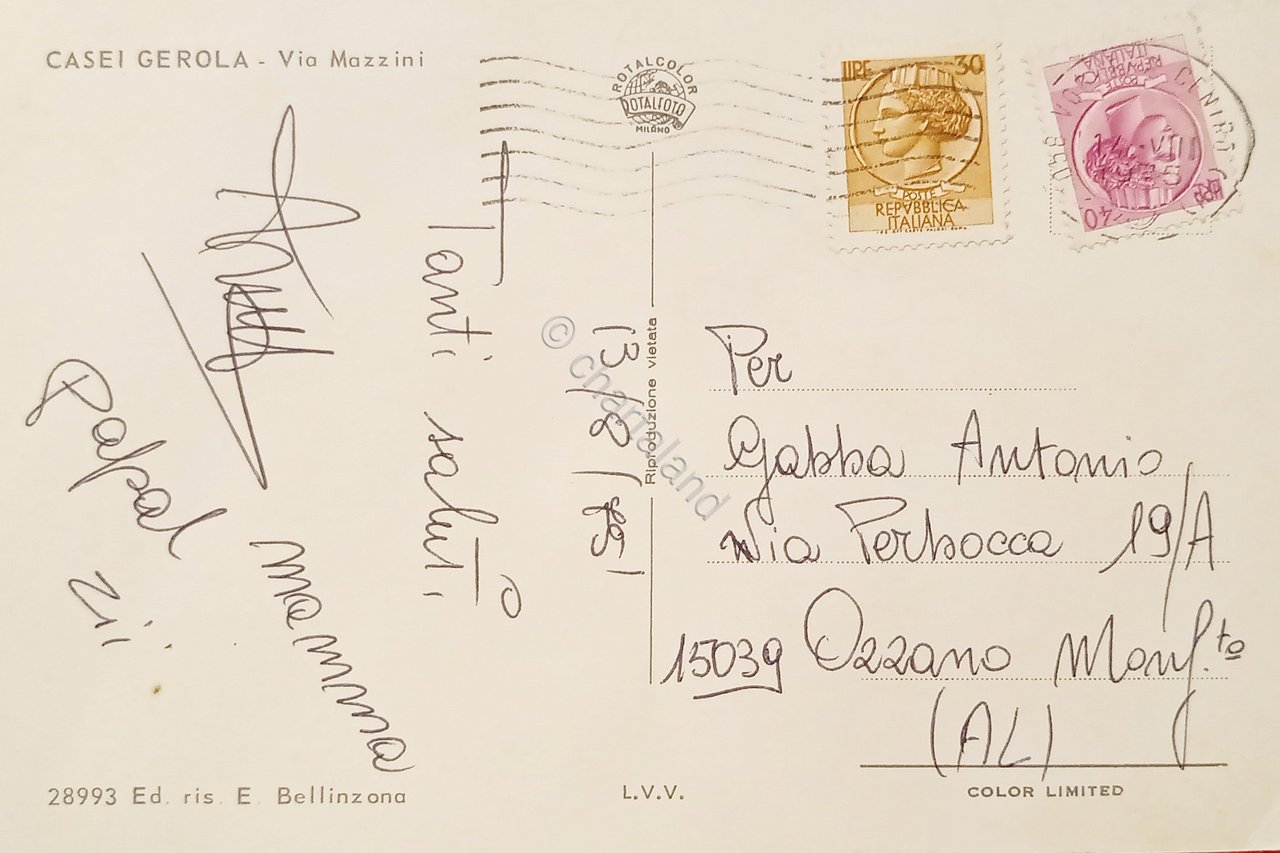 CASEI GEROLA - Via Mazzini
ROTALCOLOR
ROTALFOTO
MILANO
LIRE 30
POSTE
REPVBBLICA
ITALIANA
LIRE 40
POSTE
REPVBBLICA
ITALIANA
Tanti saluti
Papà
zii
mamma
Riproduzione vietata
© chartaland
Per
Gabba Antonio
Via Perbocca 19/A
15039 Ozzano Monf.to
(AL)
28993 Ed. ris. E. Bellinzona
L.V.V.
COLOR LIMITED